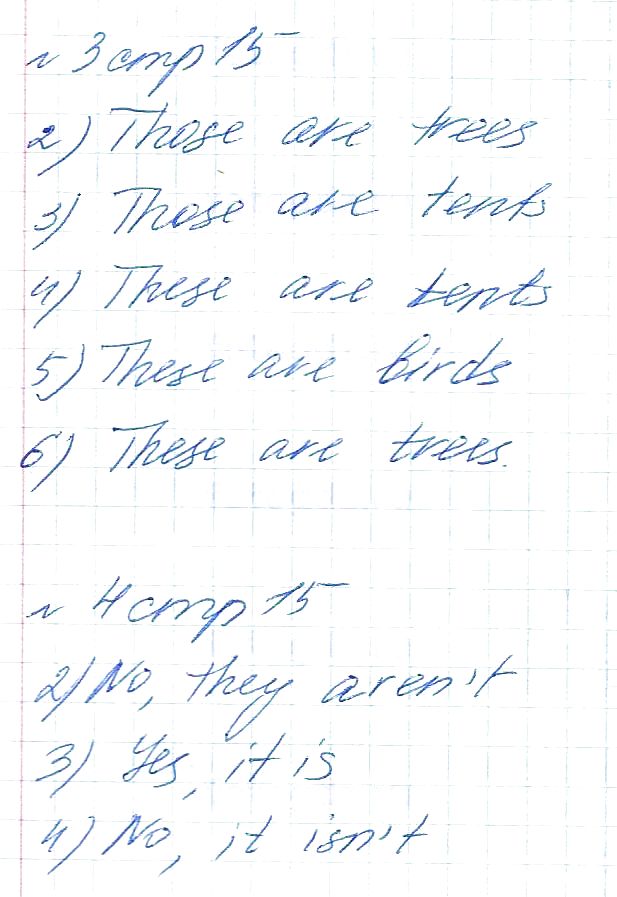 № 3 стр 15
2) Those are trees
3) Those are tents
4) These are tents
5) These are birds
6) These are trees.
№ 4 стр 15
2) No, they aren't
3) Yes, it is
4) No, it isn't